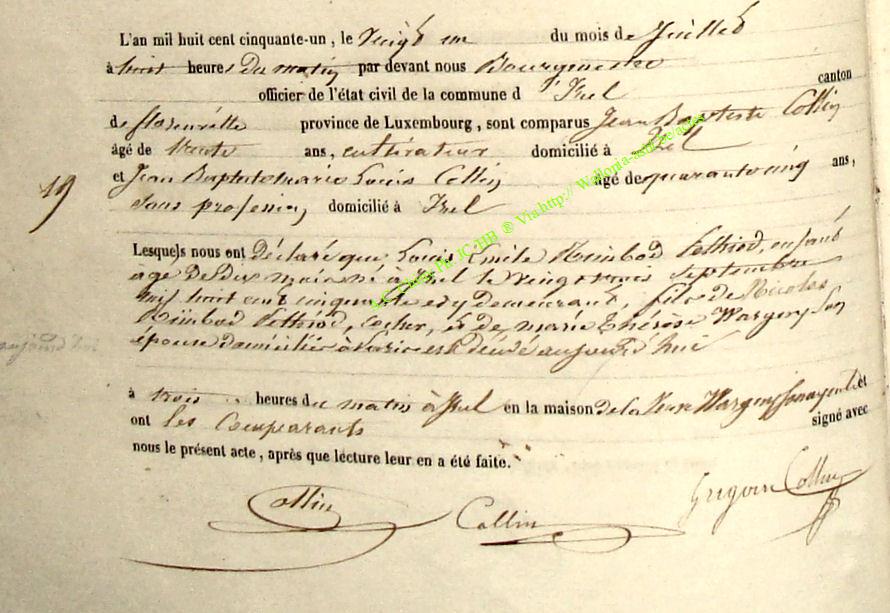 L'an mil huit cent cinquante-un, le vingt un du mois de Juillet
à huit heures du matin par devant nous Bourgmestre
officier de l'état civil de la commune d'Izel canton
de florenville province de Luxembourg, sont comparus Jean Baptiste Collin
âgé de trente ans, cultivateur domicilié à Izel
19
et Jean Baptiste marie Louis Collin âgé de quarante cinq ans,
sans profession domicilié à Izel
Lesquels nous ont Déclaré que Louis Emile Rimbod Pethiod, enfant
agé de dix mois né à Izel le vingt trois Septembre
mil huit cent cinquante et y demeurant, fils de Nicolas
Rimbod Pethiod, cocher, et de marie Thérèse Wargny son
aujourd'hui
épouse domiciliés à Paris est décédé aujourd'hui
à trois heures du matin à Izel en la maison de la veuve Wargny sonayeule et
ont les Comparants signé avec
nous le présent acte, après que lecture leur en a été faite.
Collin Collin Grégoire Collin
Via http://